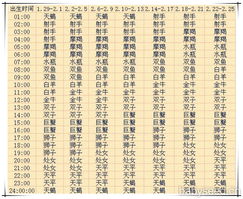 出生时间 1.29-2.1 2.2-2.5 2.6-2.9 2.10-2.13 2.14-2.17 2.18-2.21 2.22-2.25
01:00 天蝎 天蝎 天蝎 天蝎 射手 射手 射手
02:00 射手 射手 射手 射手 射手 射手 射手
03:00 射手 射手 射手 射手 射手 摩羯 摩羯
04:00 射手 摩羯 摩羯 摩羯 摩羯 摩羯 摩羯
05:00 摩羯 摩羯 摩羯 摩羯 摩羯 水瓶 水瓶
06:00 摩羯 摩羯 水瓶 水瓶 水瓶 水瓶 水瓶
07:00 水瓶 水瓶 水瓶 水瓶 双鱼 双鱼 双鱼
08:00 双鱼 双鱼 双鱼 双鱼 双鱼 双鱼 白羊
09:00 双鱼 双鱼 白羊 白羊 白羊 白羊 白羊
10:00 白羊 白羊 白羊 白羊 金牛 金牛 金牛
11:00 白羊 金牛 金牛 金牛 金牛 金牛 金牛
12:00 金牛 金牛 金牛 双子 双子 双子 双子
13:00 双子 双子 双子 双子 双子 双子 双子
14:00 双子 双子 双子 巨蟹 巨蟹 巨蟹 巨蟹
15:00 巨蟹 巨蟹 巨蟹 巨蟹 巨蟹 巨蟹 巨蟹
16:00 巨蟹 巨蟹 巨蟹 巨蟹 狮子 狮子 狮子
17:00 狮子 狮子 狮子 狮子 狮子 狮子 狮子
18:00 狮子 狮子 狮子 狮子 狮子 处女 处女
19:00 狮子 狮子 处女 处女 处女 处女 处女
20:00 处女 处女 处女 处女 处女 处女 处女
21:00 处女 处女 处女 天平 天平 天平 天平
22:00 天平 天平 天平 天平 天平 天平 天平
23:00 天平 天平 天平 天平 天平 天蝎 天蝎
24:00:00 天蝎 天蝎 天蝎 天蝎 天蝎 天蝎 天蝎